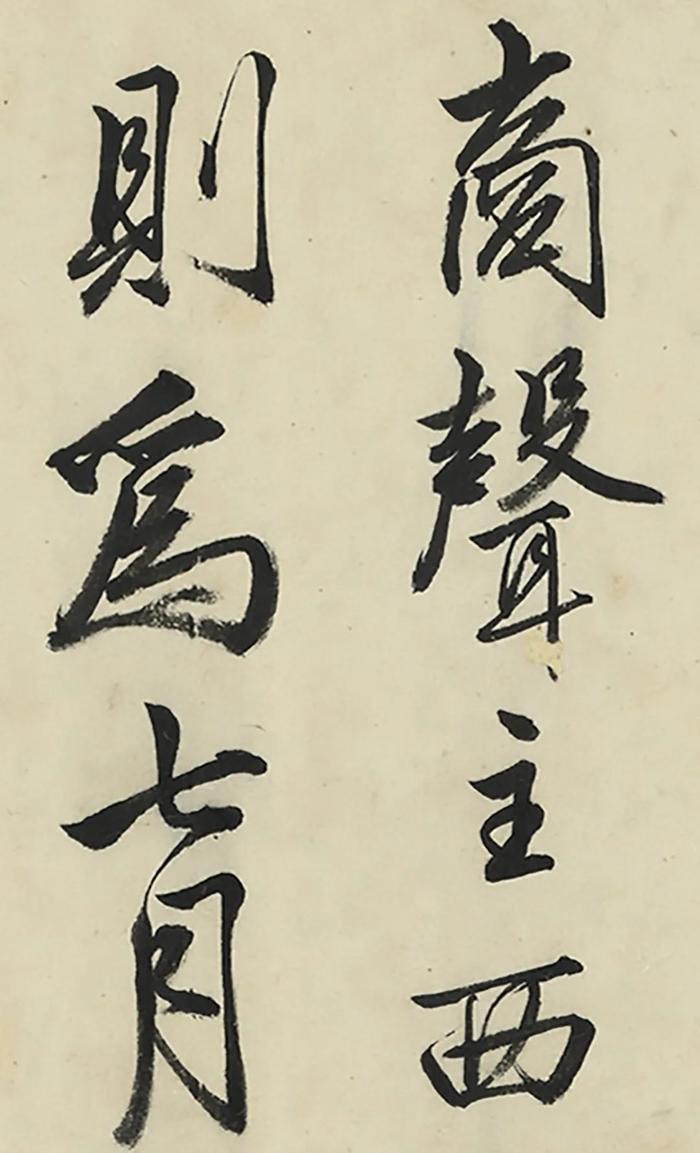 商聲主西
則爲七月